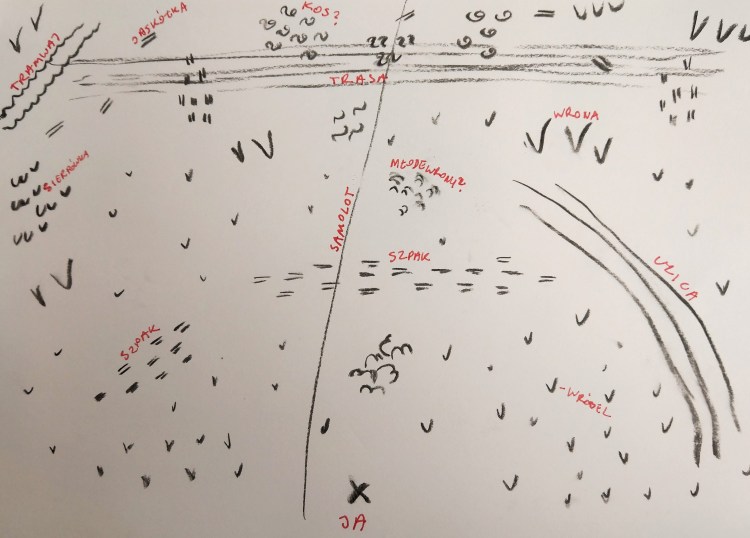 KOS?
JASKÓŁKA
TRAMWAJ
TRASA
WRONA
SIERPÓWKA
MŁODE WRONY?
SAMOLOT
SZPAK
ULICA
SZPAK
-WRÓBEL
JA